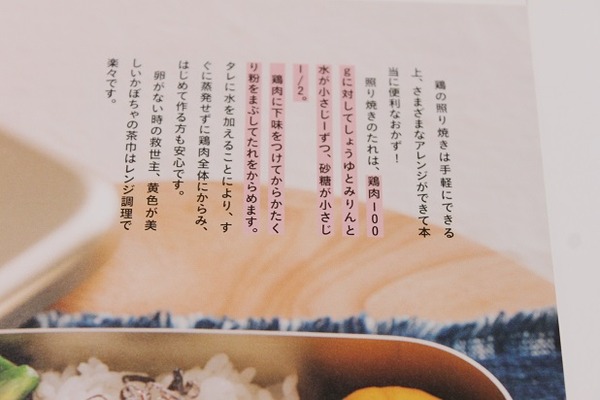 鶏の照り焼きは手軽にできる
上、さまざまなアレンジができて本
当に便利なおかず！
照り焼きのたれは、鶏肉100
gに対してしょうゆとみりんと
水が小さじ1ずつ、砂糖が小さじ
1/2。
鶏肉に下味をつけてからかたく
り粉をまぶしてたれをからめます。
タレに水を加えることにより、す
ぐに蒸発せずに鶏肉全体にからみ、
はじめて作る方も安心です。
卵がない時の救世主、黄色が美
しいかぼちゃの茶巾はレンジ調理で
楽々です。